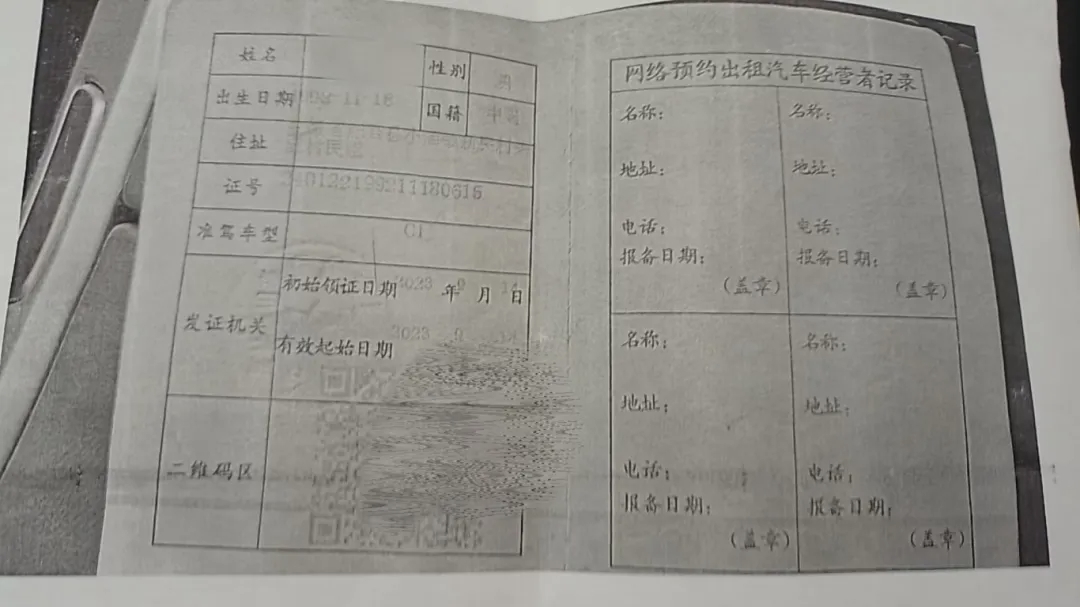 姓名 性别 男
出生日期 国籍 中国
住址
证号
准驾车型 C1
发证机关
初始领证日期 2023 年 9 月 日
有效起始日期 2023 9
二维码区
网络预约出租汽车经营者记录
名称：
地址：
电话：
报备日期：
（盖章）
名称：
地址：
电话：
报备日期：
（盖章）
名称：
地址：
电话：
报备日期：
（盖章）
名称：
地址：
电话：
报备日期：
（盖章）